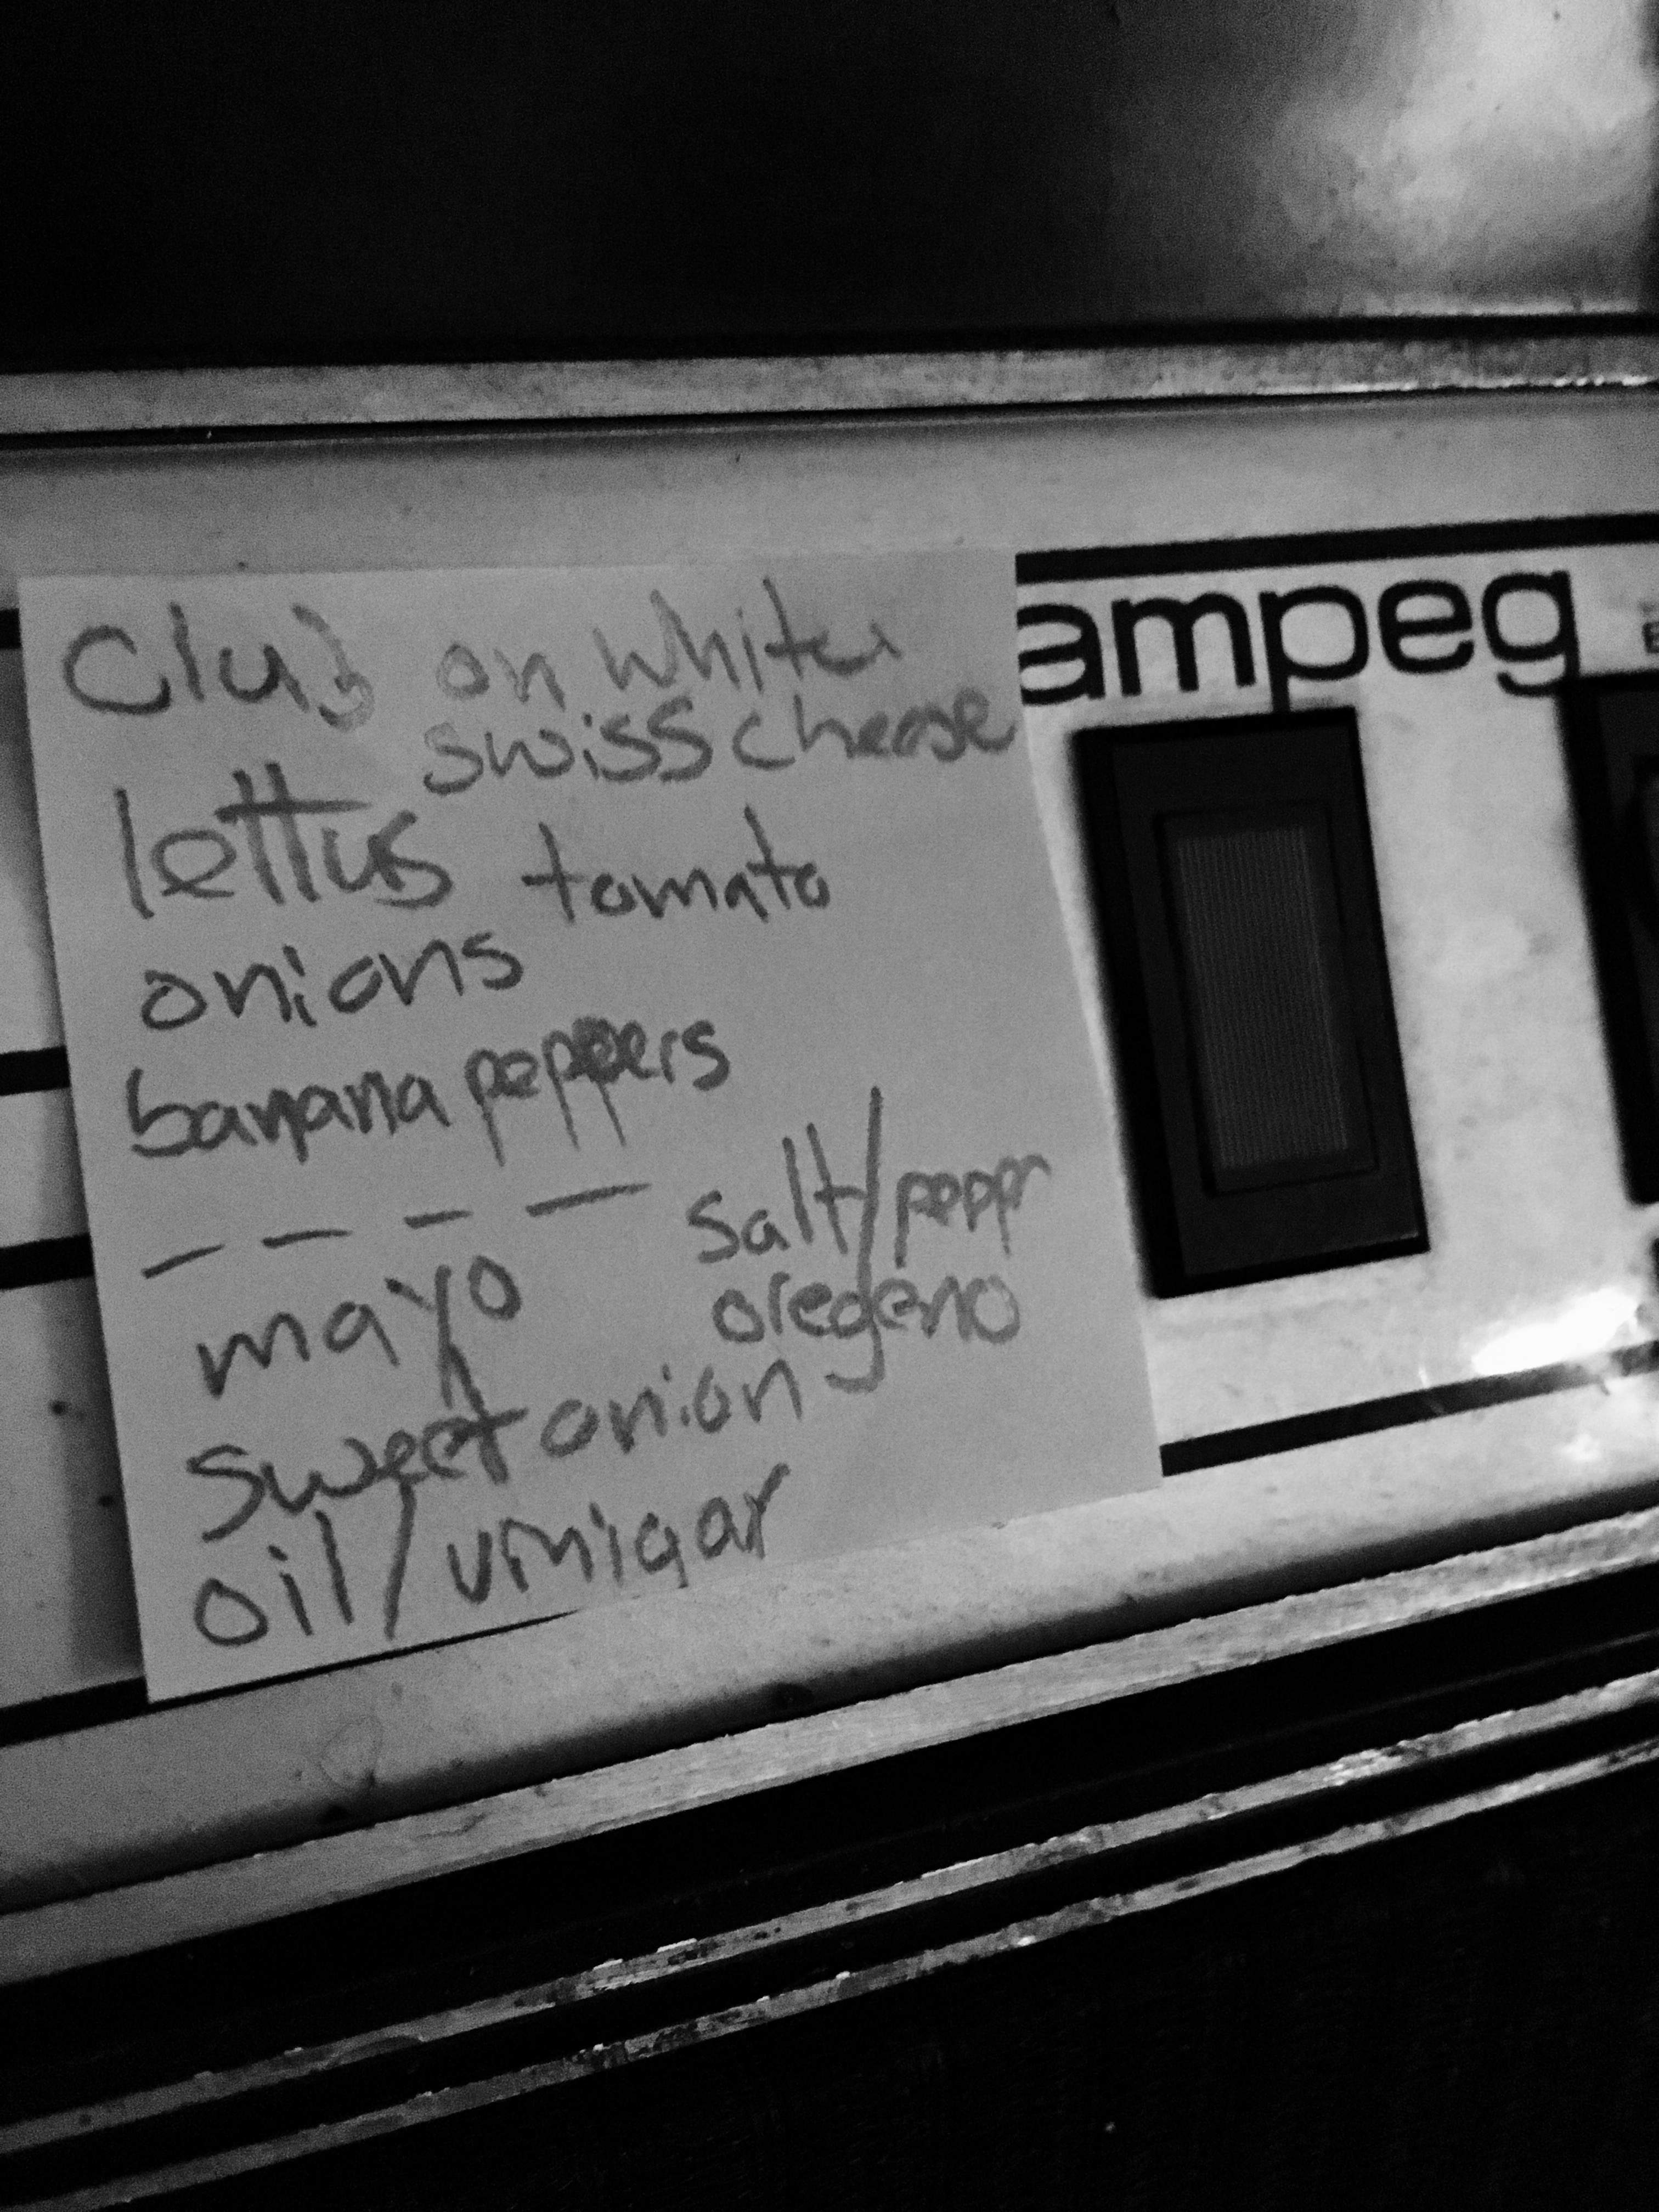 Club on white
swiss cheese
lettus tomato
onions
banana peppers
– – – –
mayo salt/peppr
oregeno
sweet onion
oil/vinigar
ampeg